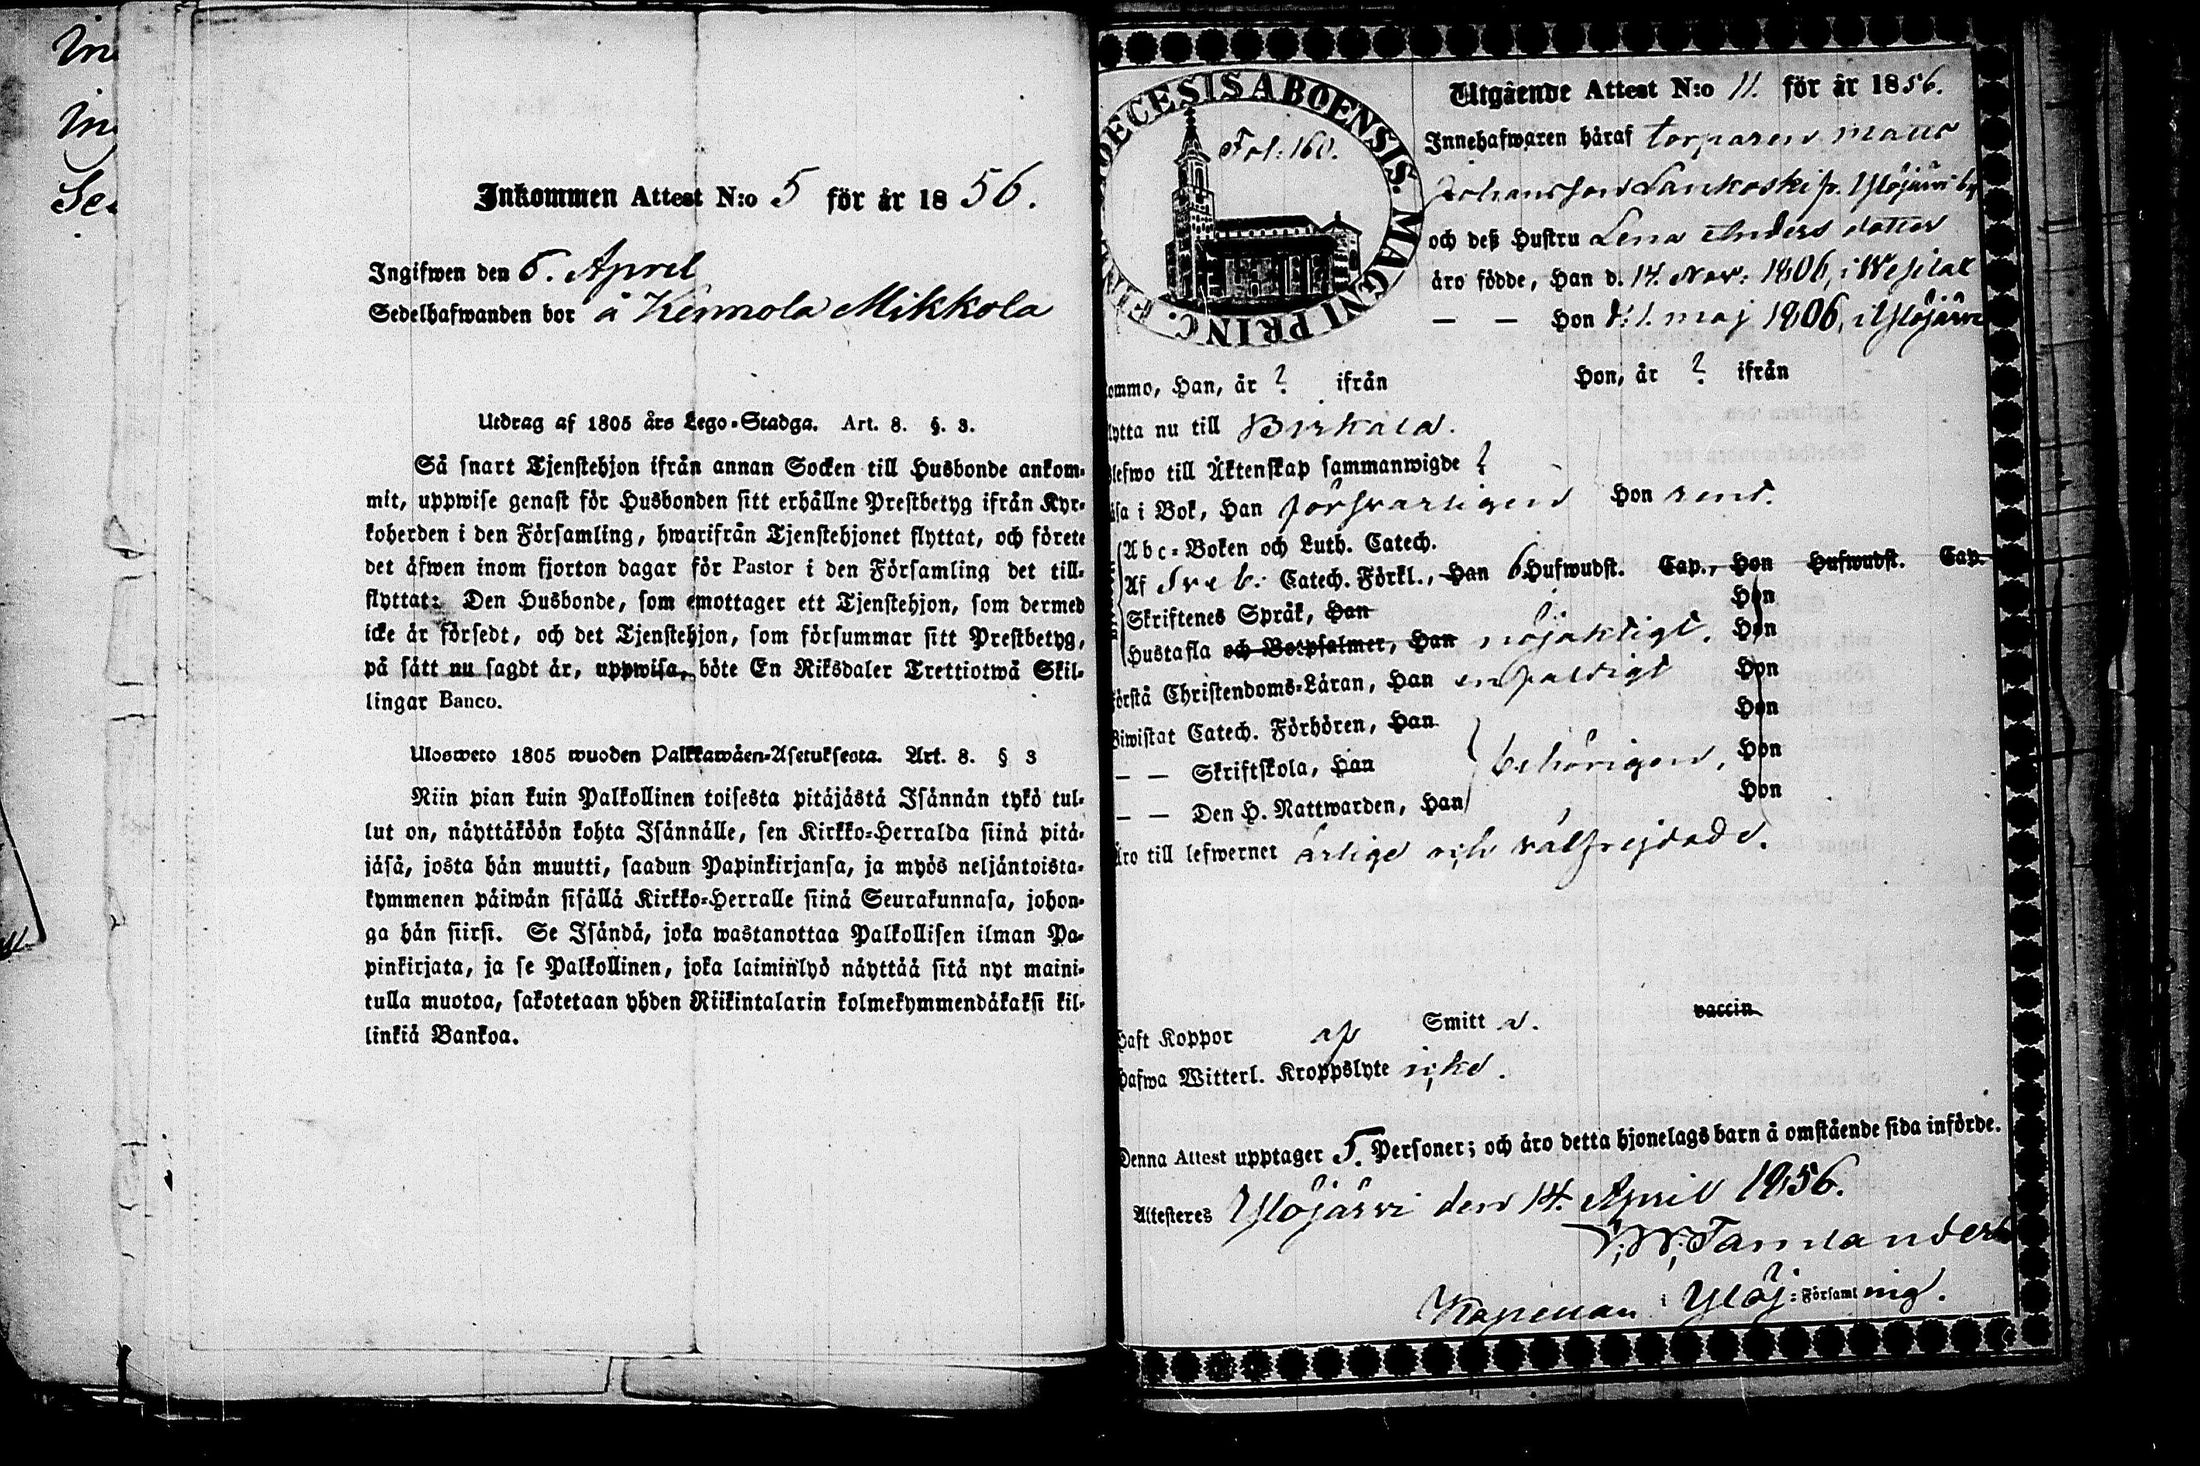 Inkommen Attest N:o 5 för år 1856.
Ingifwen den 6. April
Sedelhafwanden bor å Kennola Mikkola
Utdrag af 1805 års Lego-Stadga. Art. 8. §. 3.
Så snart Tjenstehjon ifrån annan Socken till Husbonde ankom-
mit, uppwise genast för Husbonden sitt erhållne Prestbetyg ifrån Kyr-
koherden i den Församling, hwarifrån Tjenstehjonet flyttat, och förete
det äfwen inom fjorton dagar för Pastor i den Församling det till-
flyttat: Den Husbonde, som emottager ett Tjenstehjon, som dermed
icke är försedt, och det Tjenstehjon, som försummar sitt Prestbetyg,
på sätt nu sagdt är, uppwisa, böte En Riksdaler Trettiotwå Skil-
lingar Banco.
Ulosweto 1805 wuoden Palkkawäen-Asetuksesta. Art. 8. § 3
Niin pian kuin Palkollinen toisesta pitäjästä Isännän tykö tul-
lut on, näyttäköön kohta Isännälle, sen Kirkko-Herralda siinä pitä-
jäsä, josta hän muutti, saadun Papinkirjansa, ja myös neljäntoista-
kymmenen päiwän sisällä Kirkko-Herralle siinä Seurakunnasa, johon-
ga hän siirsi. Se Isändä, joka wastanottaa Palkollisen ilman Pa-
pinkirjata, ja se Palkollinen, joka laiminlyö näyttää sitä nyt maini-
tulla muotoa, sakotetaan yhden Riikintalarin kolmekymmendäkaksi kil-
linkiä Bankoa.
DIOECESIS ABOENSIS. MAGNI PRINC.
Fol: 160.
Utgående Attest N:o 11. för år 1856.
Innehafwaren håraf torparen Matts
Johansson Lankoski fr. Ylöjärvi by
och deß Hustru Lena Anders dotter
äro födde, Han d. 14. Nov: 1806, i Wesilax
— — Hon d: 1. maj 1806, i Ylöjärvi
kommo, Han, år ? ifrån Hon, år ? ifrån
flytta nu till Birkala.
Blefwo till Äktenskap sammanwigde ?
läsa i Bok, Han försvarligen Hon rent.
Abc-Boken och Luth. Catech.
Af Sveb: Catech. Förkl., Han 6 Hufwudst. Cap., Hon Hufwudst. Cap.
Skriftenes Språk, Han Hon
Hustafla och Botpsalmer, Han nöjaktigt. Hon
förstå Christendoms-Läran, Han enfaldigt Hon
Biwistat Catech. Förhören, Han Hon
— — Skriftskola, Han behörigen, Hon
— — Den H. Nattwarden, Han Hon
Äro till lefwernet ärlige och välfrejdade.
Haft Koppor af Smitt a. vaccin
Hafwa Witterl. Kroppslyte icke.
Denna Attest upptager 5. Personer; och äro detta hjonelags barn å omstående sida införde.
Attesteres Ylöjärvi den 14. April 1856.
Kapellan i Ylöj: Församlning.